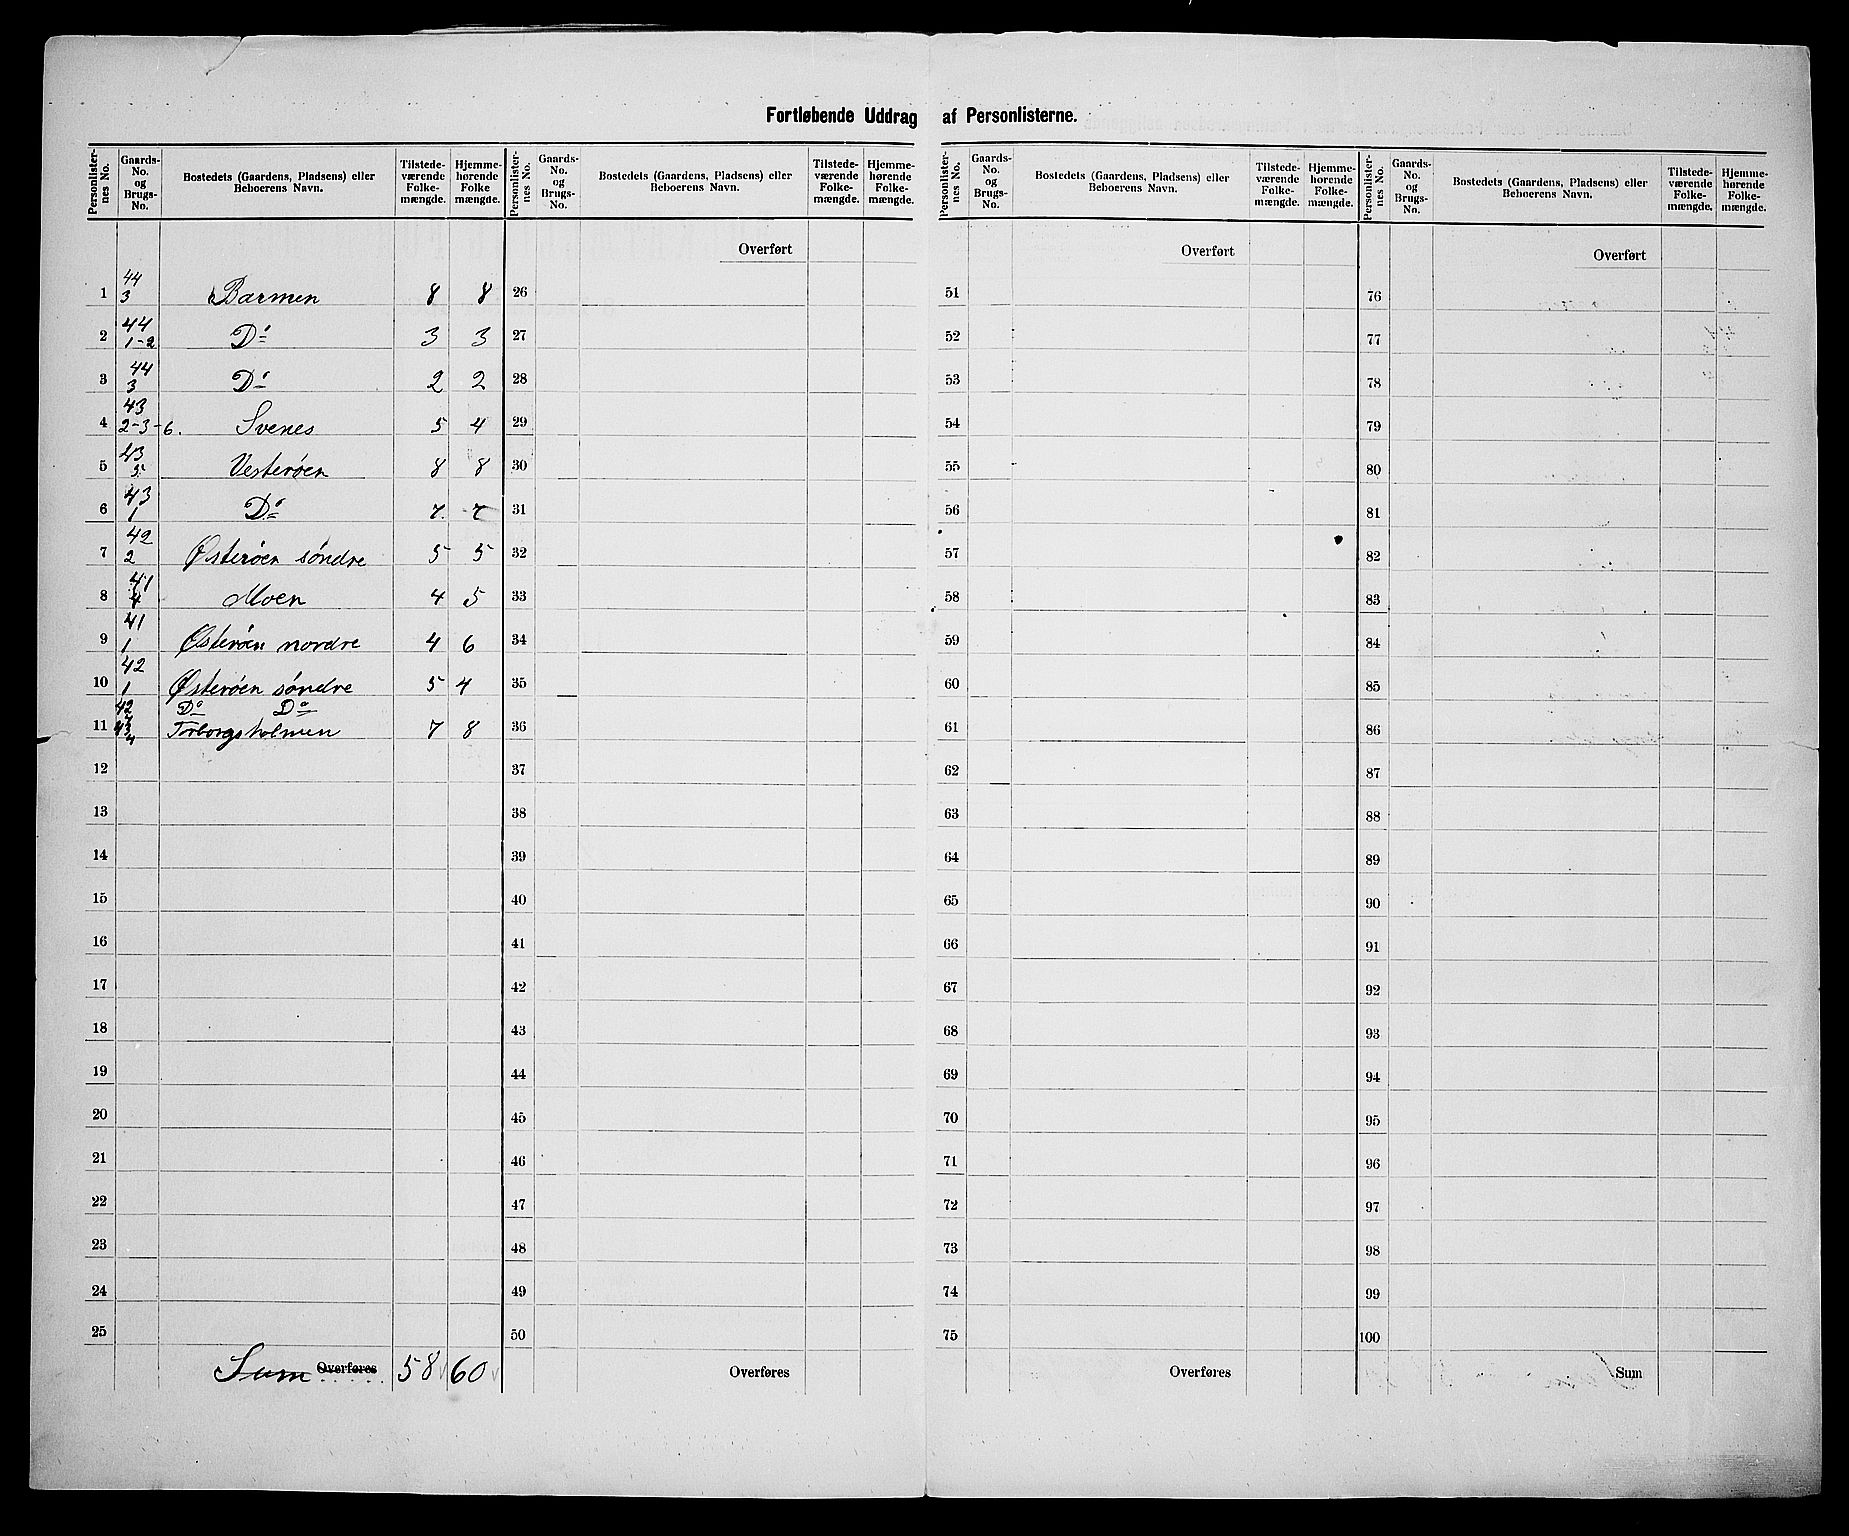 Fortløbende Uddrag af Personlisterne.
Personlister-nes No. | Gaards-No. og Brugs-No. | Bostedets (Gaardens, Pladsens) eller Beboerens Navn. | Tilstede-værende Folke-mængde. | Hjemme-hørende Folke mængde.
1 | 44 3 | Barmen | 8 | 8
2 | 44 1-2 | Do | 3 | 3
3 | 44 3 | Do | 2 | 2
4 | 43 2-3-6. | Svenes | 5 | 4
5 | 43 5 | Vesterøen | 8 | 8
6 | 43 1 | Do | 7 | 7
7 | 42 2 | Østerøen søndre | 5 | 5
8 | 41 4 | Moen | 4 | 5
9 | 41 1 | Østerøen nordre | 4 | 6
10 | 42 1 | Østerøen søndre | 5 | 4
42 | Do Do
11 | 43 4 | Torborgsholmen | 7 | 8
12
13
14
15
16
17
18
19
20
21
22
23
24
25
Sum Overføres | 58 | 60
Personlister-nes No. | Gaards-No. og Brugs-No. | Bostedets (Gaardens, Pladsens) eller Beboerens Navn. | Tilstede-værende Folke-mængde. | Hjemme-hørende Folke-mængde.
Overført
26
27
28
29
30
31
32
33
34
35
36
37
38
39
40
41
42
43
44
45
46
47
48
49
50
Overføres
Personlister-nes No. | Gaards-No. og Brugs-No. | Bostedets (Gaardens, Pladsens) eller Beboerens Navn. | Tilstede-værende Folke-mængde. | Hjemme-hørende Folke-mængde.
Overført
51
52
53
54
55
56
57
58
59
60
61
62
63
64
65
66
67
68
69
70
71
72
73
74
75
Overføres
Personlister-nes No. | Gaards-No. og Brugs-No. | Bostedets (Gaardens, Pladsens) eller Beboerens Navn. | Tilstede-værende Folke-mængde. | Hjemme-hørende Folke-mængde.
Overført
76
77
78
79
80
81
82
83
84
85
86
87
88
89
90
91
92
93
94
95
96
97
98
99
100
Sum